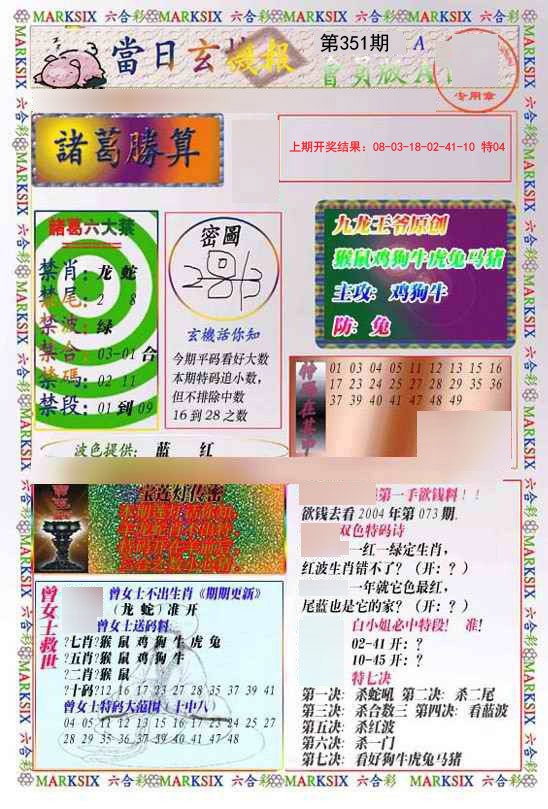 MARKSIX 六合彩 MARKSIX 六合彩 MARKSIX 六合彩 MARKSIX 六合彩 MARKSIX
當日玄機報
第351期 A
會員版A
专用章
諸葛勝算
上期开奖结果: 08-03-18-02-41-10 特04
諸葛六大禁
禁肖: 龙 蛇
禁尾: 2 8
禁波: 绿
禁合: 03-01 合
禁碼: 02 11
禁段: 01 到 09
密圖
玄機話你知
今期平码看好大数
本期特码追小数,
但不排除中数
16 到 28 之数
九龙王爷原创
猴鼠鸡狗牛虎兔马猪
主攻: 鸡狗牛
防: 兔
01 03 04 05 11 12 13 15 16
17 23 24 25 27 28 29 35 36
37 39 40 41 47 48 49
波色提供: 蓝 红
宝莲灯传密
第一手欲钱料!!
欲钱去看 2004 年第 073 期.
双色特码诗
一红一绿定生肖,
红波生肖错不了? (开: ?)
一年就它色最红,
尾蓝也是它的家? (开: ?)
白小姐必中特段! 准!
02-41 开: ?
10-45 开: ?
特七决
第一决: 杀蛇吼 第二决: 杀二尾
第三决: 杀合数三 第四决: 看蓝波
第五决: 杀红波
第六决: 杀一门
第七决: 看好狗牛虎兔马猪
曾女士救世
曾女士不出生肖《期期更新》
(龙 蛇) 准 开
曾女士送码料
?七肖?猴 鼠 鸡 狗 牛 虎 兔
?五肖?猴 鼠 鸡 狗 牛
?二肖?猴 鼠
?十码?12 16 17 23 27 28 35 37 39 41
曾女士特码大范围 (十中八)
04 05 11 12 13 15 16 17 23 24 25 27
28 29 35 36 37 39 40 41 47 48
MARKSIX 六合彩 MARKSIX 六合彩 MARKSIX 六合彩 MARKSIX 六合彩 MARKSIX